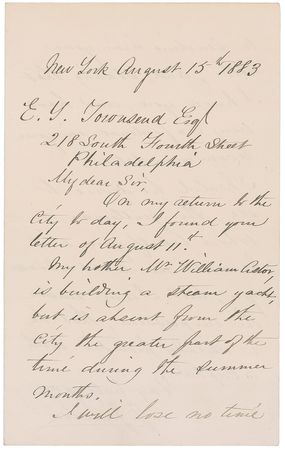 New York August 15th 1883
E. Y. Townsend Esqr
218 South Fourth Street
Philadelphia
My dear Sir,
On my return to the
City to day, I found your
letter of August 11th.
My brother Mr. William Astor
is building a steam yacht,
but is absent from the
City the greater part of the
time during the summer
months.
I will lose no time